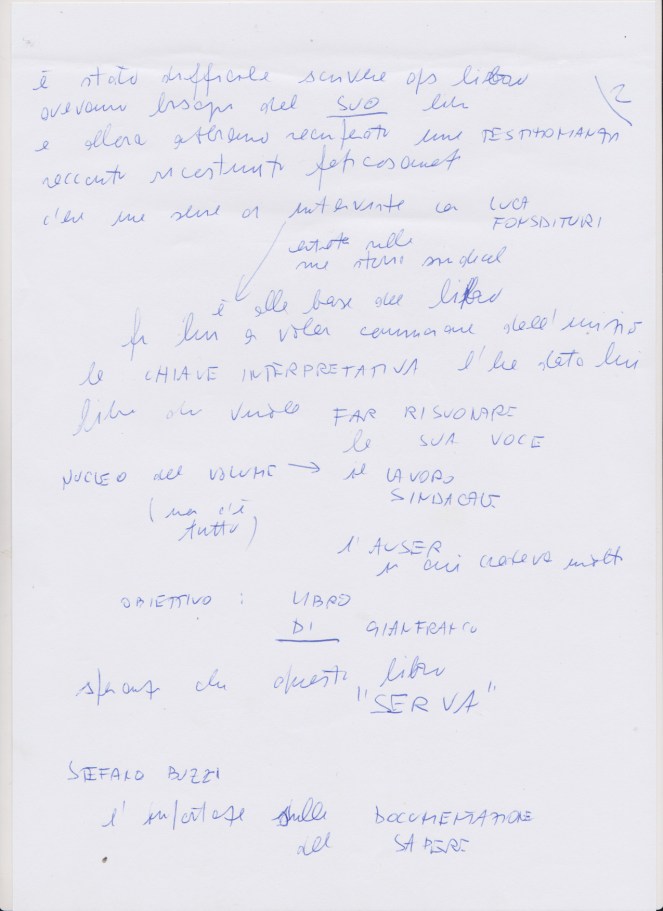 è stato difficile scrivere qs libro
2
avevamo bisogno del SUO
e allora abbiamo recuperato una TESTIMONIANZA
racconti ricostruiti faticosament
c'era una serie di interviste con LUCA
FONSDITURI
sulle
sue storie sindacal
è alla base del libro
fu lui a voler cominciare dall'inizio
la CHIAVE INTERPRETATIVA l'ha data lui
libro che vuole FAR RISUONARE
la SUA VOCE
NUCLEO del VOLUME → il LAVORO
SINDACALE
(ma c'è
tutto)
l'AUSER
in cui credeva molto
OBIETTIVO : LIBRO
DI GIANFRANCO
speranza che questo libro
"SERVA"
STEFANO BUZZI
l'importanza della DOCUMENTAZIONE
del SAPERE